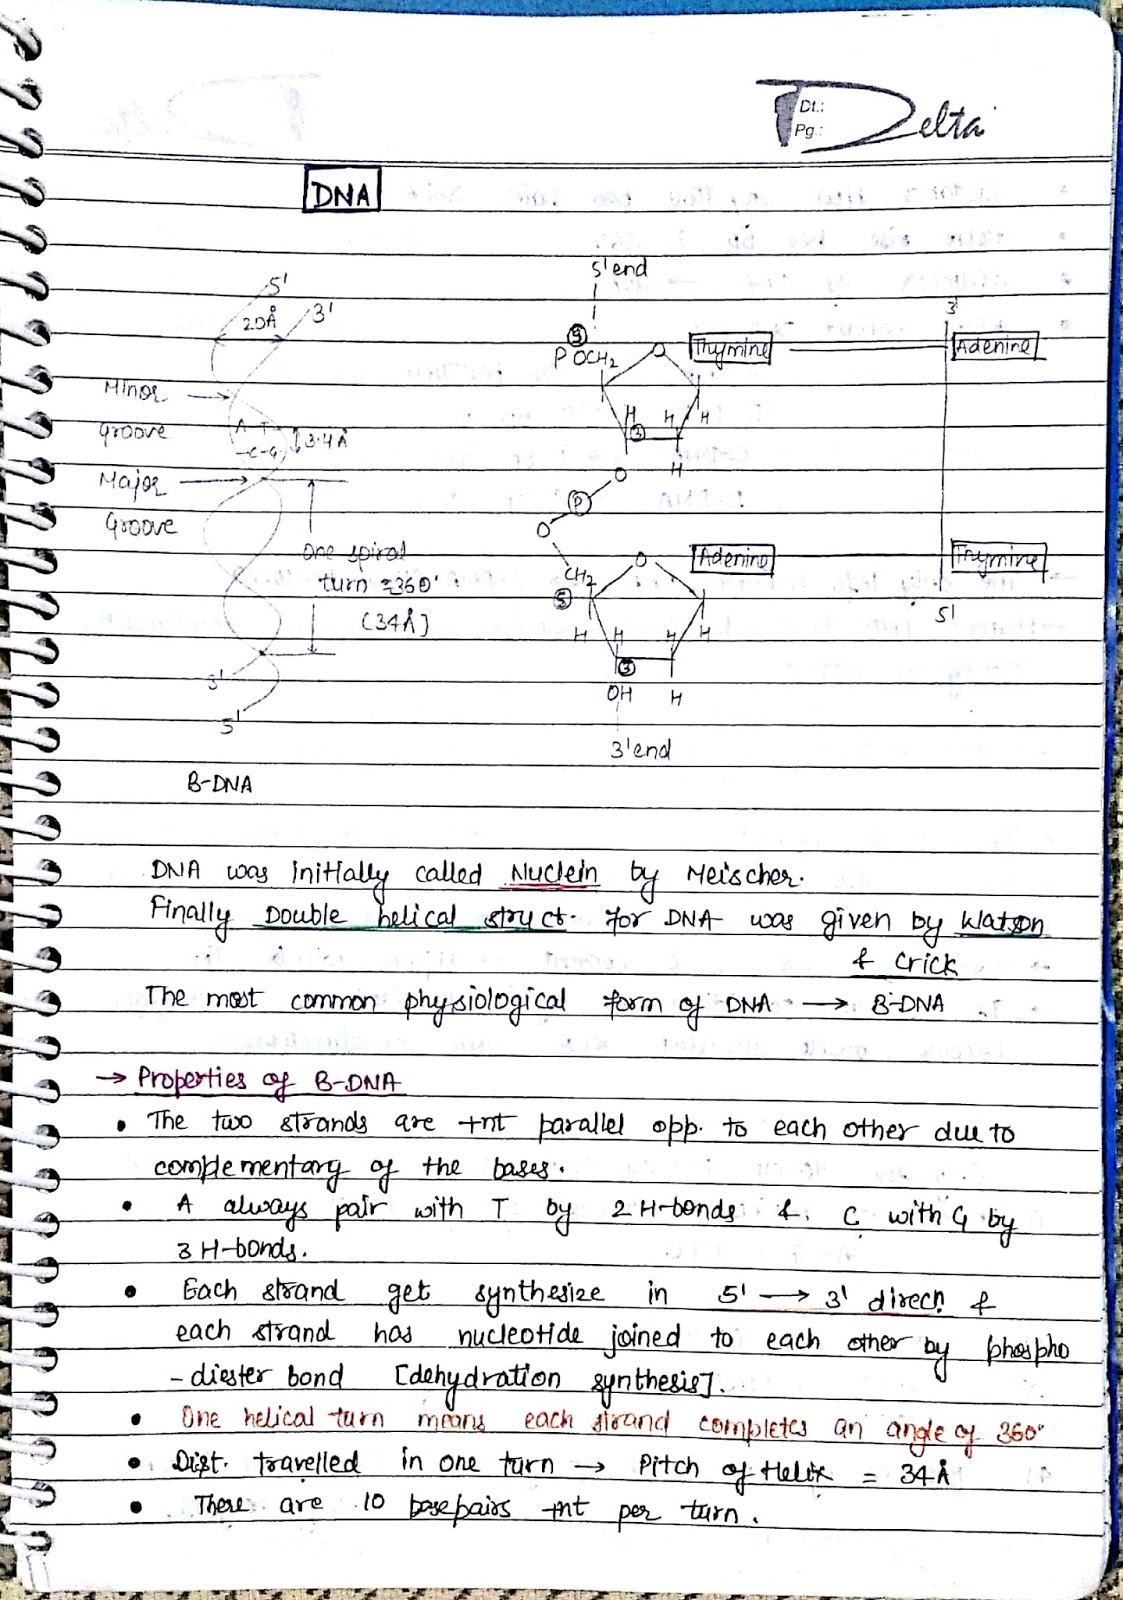 Dt.:
Pg.:
Delta
DNA
5'
3'
20Å
Minor
groove
A T
-C-G
3.4Å
Major
Groove
One spiral
turn ≈360°
(34Å]
3'
5'
B-DNA
5'end
5
P OCH2
O
Thymine
Adenine
3'
H
H
H
3
H
O
P
O
CH2
5
O
Adenine
Thymine
5'
H
H
H
H
3
OH
H
3'end
DNA was initially called Nuclein by Meischer.
Finally Double helical struct. for DNA was given by Watson
& Crick
The most common physiological form of DNA → B-DNA
→ Properties of B-DNA
• The two strands are +nt parallel opp. to each other due to
complementary of the bases.
• A always pair with T by 2 H-bonds & C with G by
3 H-bonds.
• Each strand get synthesize in 5' → 3' direcn &
each strand has nucleotide joined to each other by phospho
-diester bond [dehydration synthesis].
• One helical turn means each strand completes an angle of 360°
• Dist. travelled in one turn → Pitch of Helix = 34Å
• There are 10 basepairs +nt per turn.